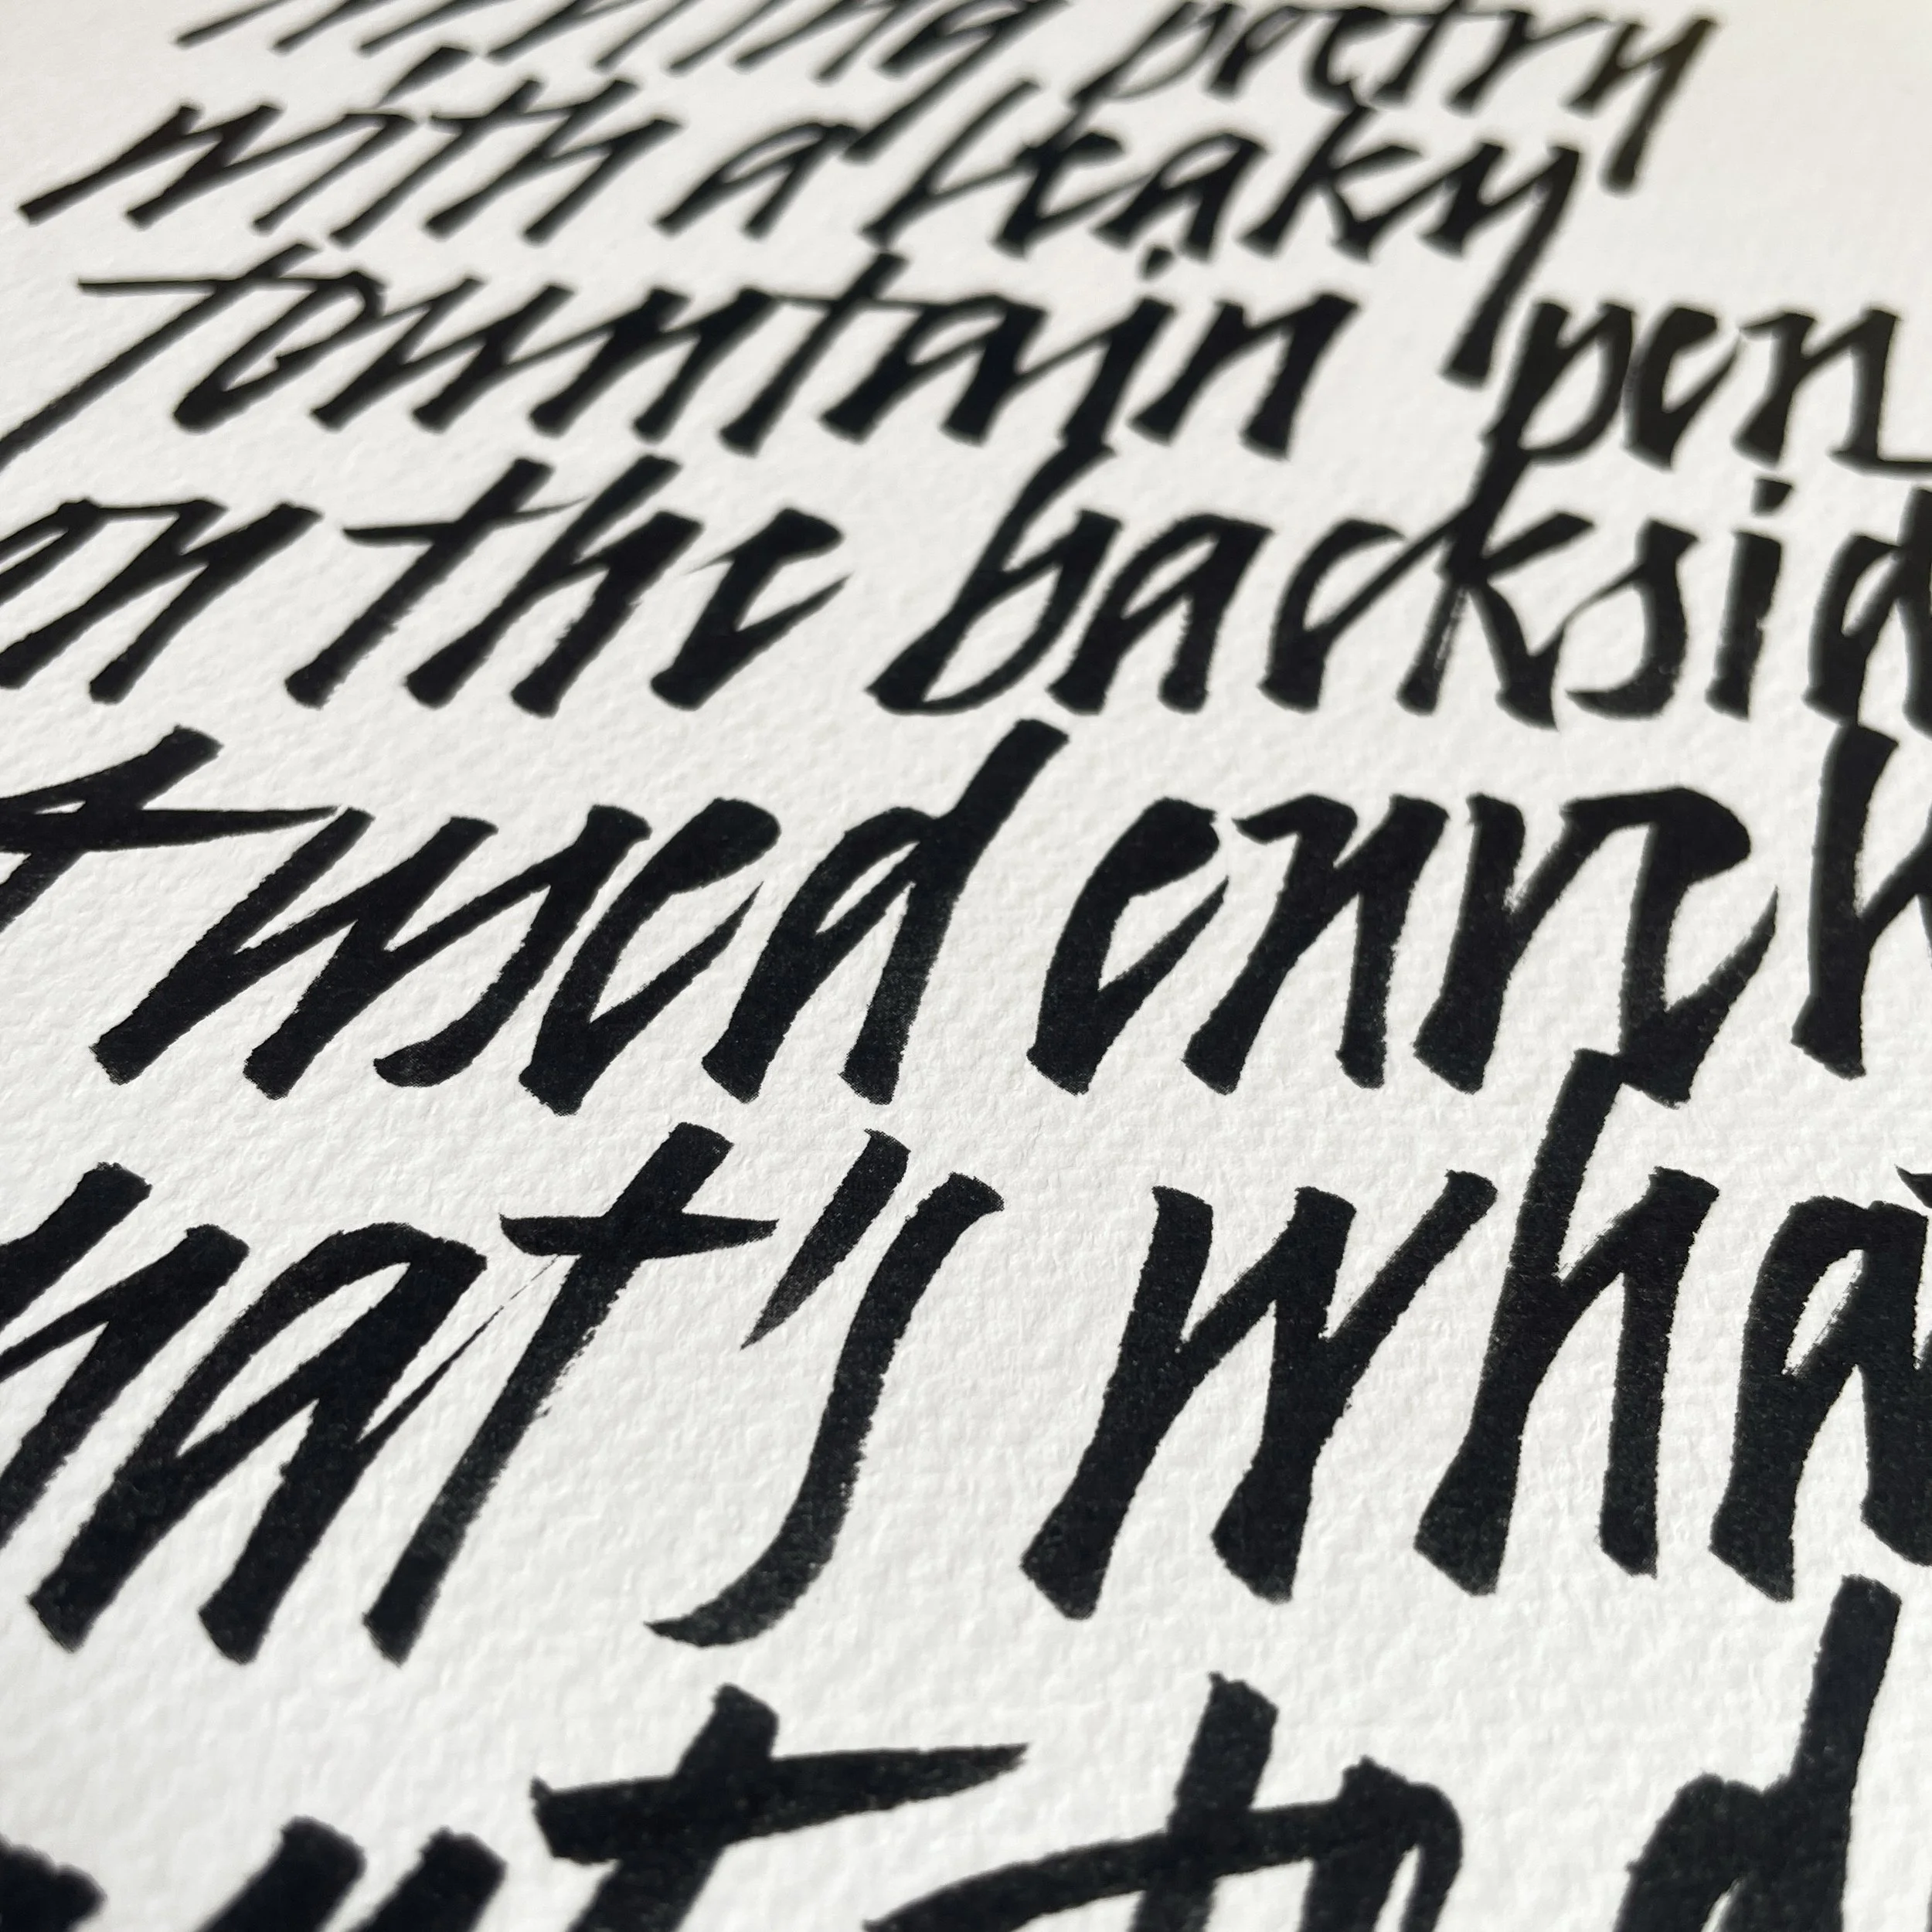 poetry
with a leaky
fountain pen
on the backsid
used envel
hat's wha
nt to d